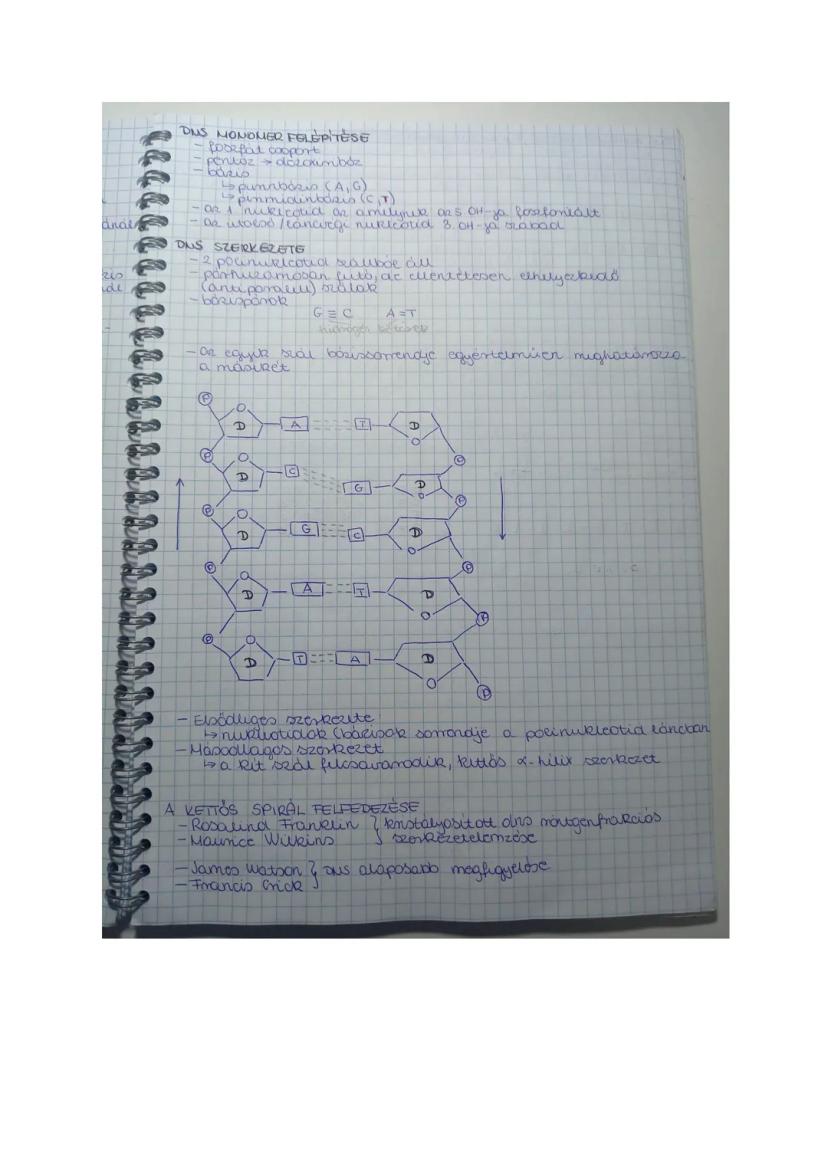 DNS MONOMER FELÉPÍTÉSE
- foszfát csoport
- pentóz → dezoxiribóz
- bázis
↳ purinbázis (A, G)
↳ pirimidinbázis (C, T)
- az 1. nukleotid az amelynek az 5. OH-ja foszforilált
- az utolsó / láncvégi nukleotid 3. OH-ja szabad
DNS SZERKEZETE
- 2 polinukleotid szálból áll
- párhuzamosan futó, de ellentétesen elhelyezkedő
(antiparallel) szálak
- bázispárok
G ≡ C A = T
hidrogén kötések
- az egyik szál bázissorrendje egyértelműen meghatározza
a másikét
P
O
D A T D
O
P P
O
D C G D
O
P P
O
D G C D
O
P P
O
D A T D
O
P P
O
D T A D
O
P
- Elsődleges szerkezete
↳ nukleotidok (bázisok sorrendje a polinukleotid láncban
- Másodlagos szerkezet
↳ a két szál felcsavarodik, kettős α-hélix szerkezet
A KETTŐS SPIRÁL FELFEDEZÉSE
- Rosalind Franklin } kristályosított dns röntgenfrakciós
- Maurice Wilkins } szerkezetelemzése
- James Watson } DNS alaposabb megfigyelése
- Francis Crick }